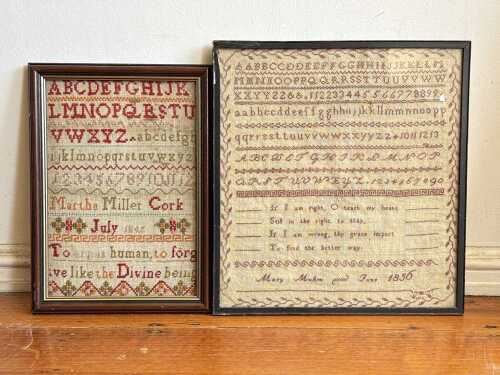 ABCDEFGHIJK
LMNOPQRSTU
VWXYZ.abcdefg
hijklmnopqrstuvwxyz
12345678910 11 12
Martha Miller Cork
July
To err is human, to forg
ive like the Divine being
AABBCCDDEEFFGGHHIIJJKKLLM
MNNOOPPQQRRSSTTUUVVWW
XXYYZZ&&1122334455667789
aabbccddeeffgghhiijjkkllmmnnoopp
qqrrssttuuvvwwxxyyzz
ABCDEFGHIJKLMNOP
QRSTUVWXYZ
If I am right, O teach my heart
Still in the right to stay,
If I am wrong, thy grace impart
To find the better way.
Mary
June 1836